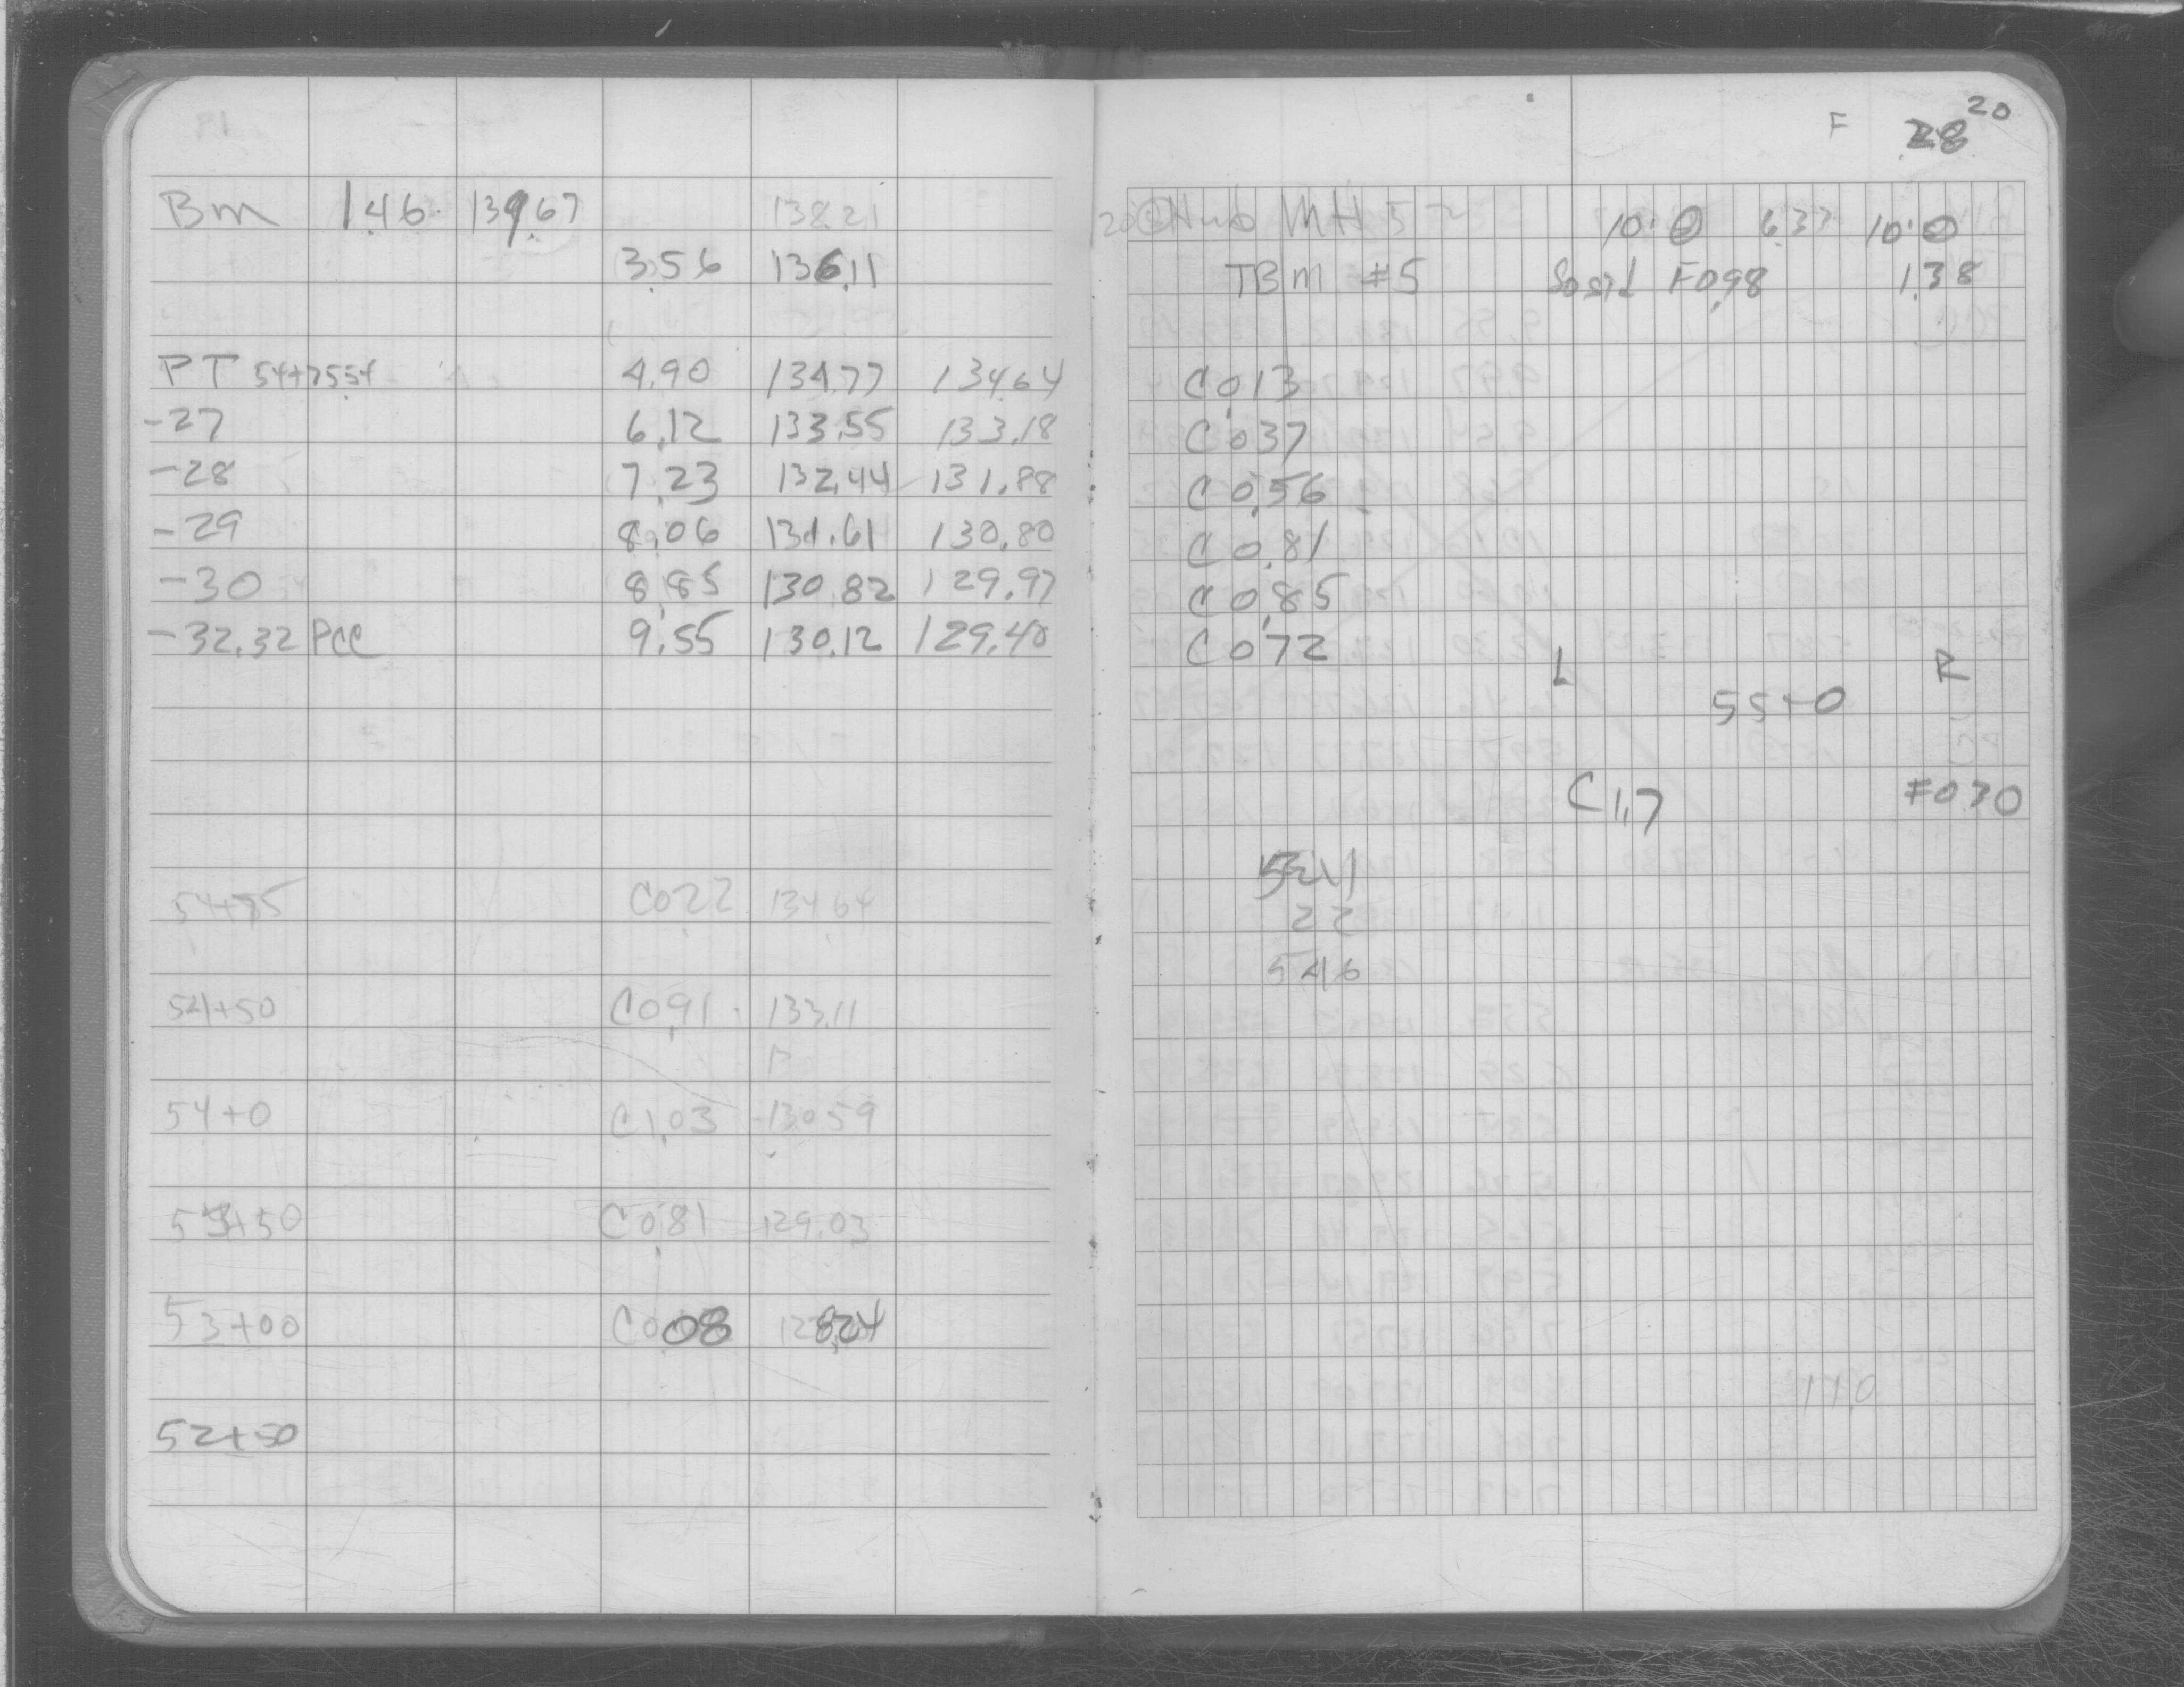 BM 1.46 139.67 138.21
3.56 136.11
PT 54+75.54 4.90 134.77 134.64
-27 6.12 133.55 133.18
-28 7.23 132.44 131.88
-29 8.06 131.61 130.80
-30 8.85 130.82 129.97
-32.32 PCC 9.55 130.12 129.40
54+75 C0.22 134.64
54+50 C0.91 133.11
54+0 C1.03 130.59
53+50 C0.81 129.03
53+00 C0.08 128.24
52+50
F 28 20
Hub MH 5 10.0 6.37 10.0
TBM #5 F0.98 1.38
C0.13
C0.37
C0.56
C0.81
C0.85
C0.72
L 55+0 R
C1.7 F0.30
22
546
110